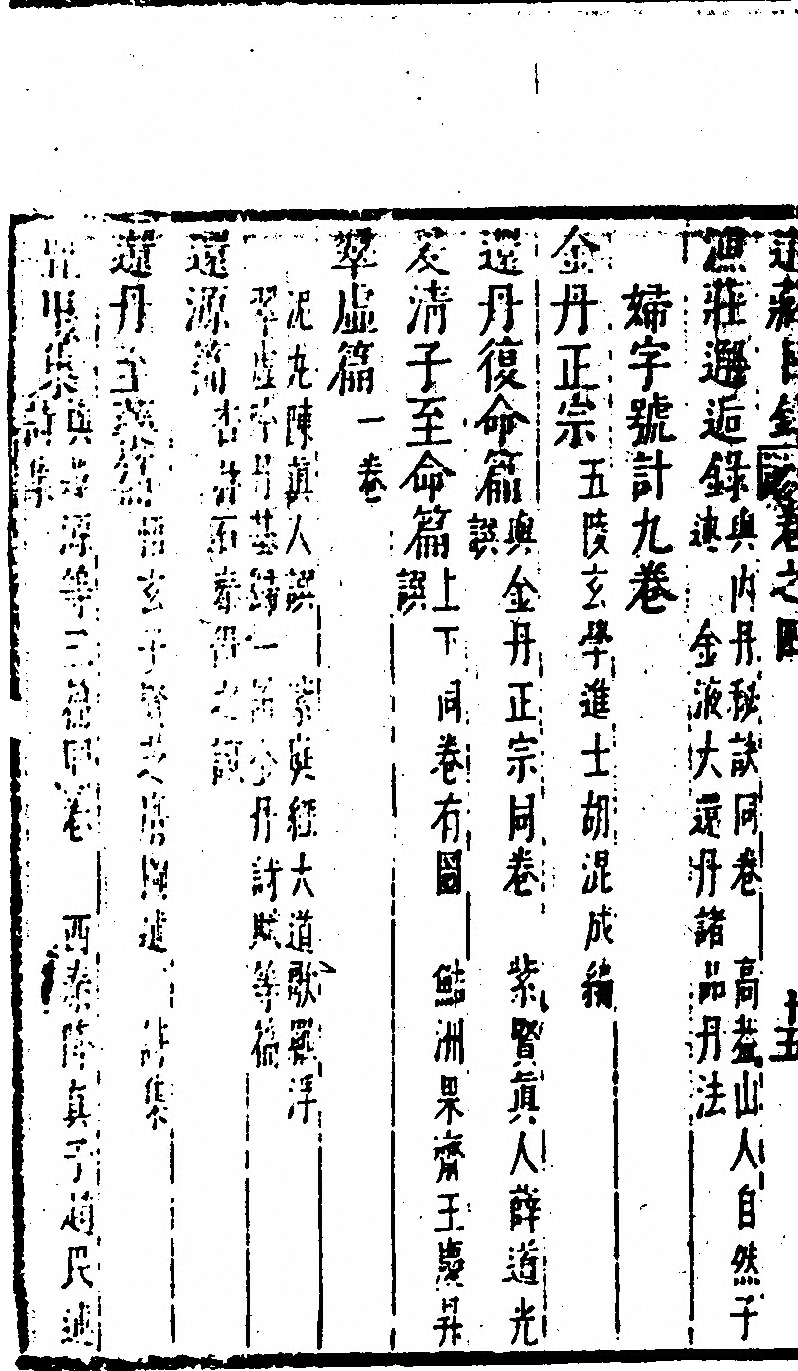 道藏目錄 卷之四 十五
漁莊邂逅錄 與內丹秘訣同卷 高蓋山人自然子
述 金液大還丹諸品丹法
婦字號計九卷
金丹正宗 五陵玄學進士胡混成編
還丹復命篇 與金丹正宗同卷 紫賢眞人薛道光
譔
爰清子至命篇 上下同卷有圖 鮚洲果齋王慶升
譔
翠虛篇 一卷
泥丸陳眞人譔 紫庭經大道歌羅浮
翠虛吟丹基歸一論金丹詩賦等篇
還源篇 杏林石泰得之譔
還丹至藥篇 悟玄子賢芝膺與述 詩集
亶甲集 與還源等三篇同卷 西秦降真子趙民述
詩集